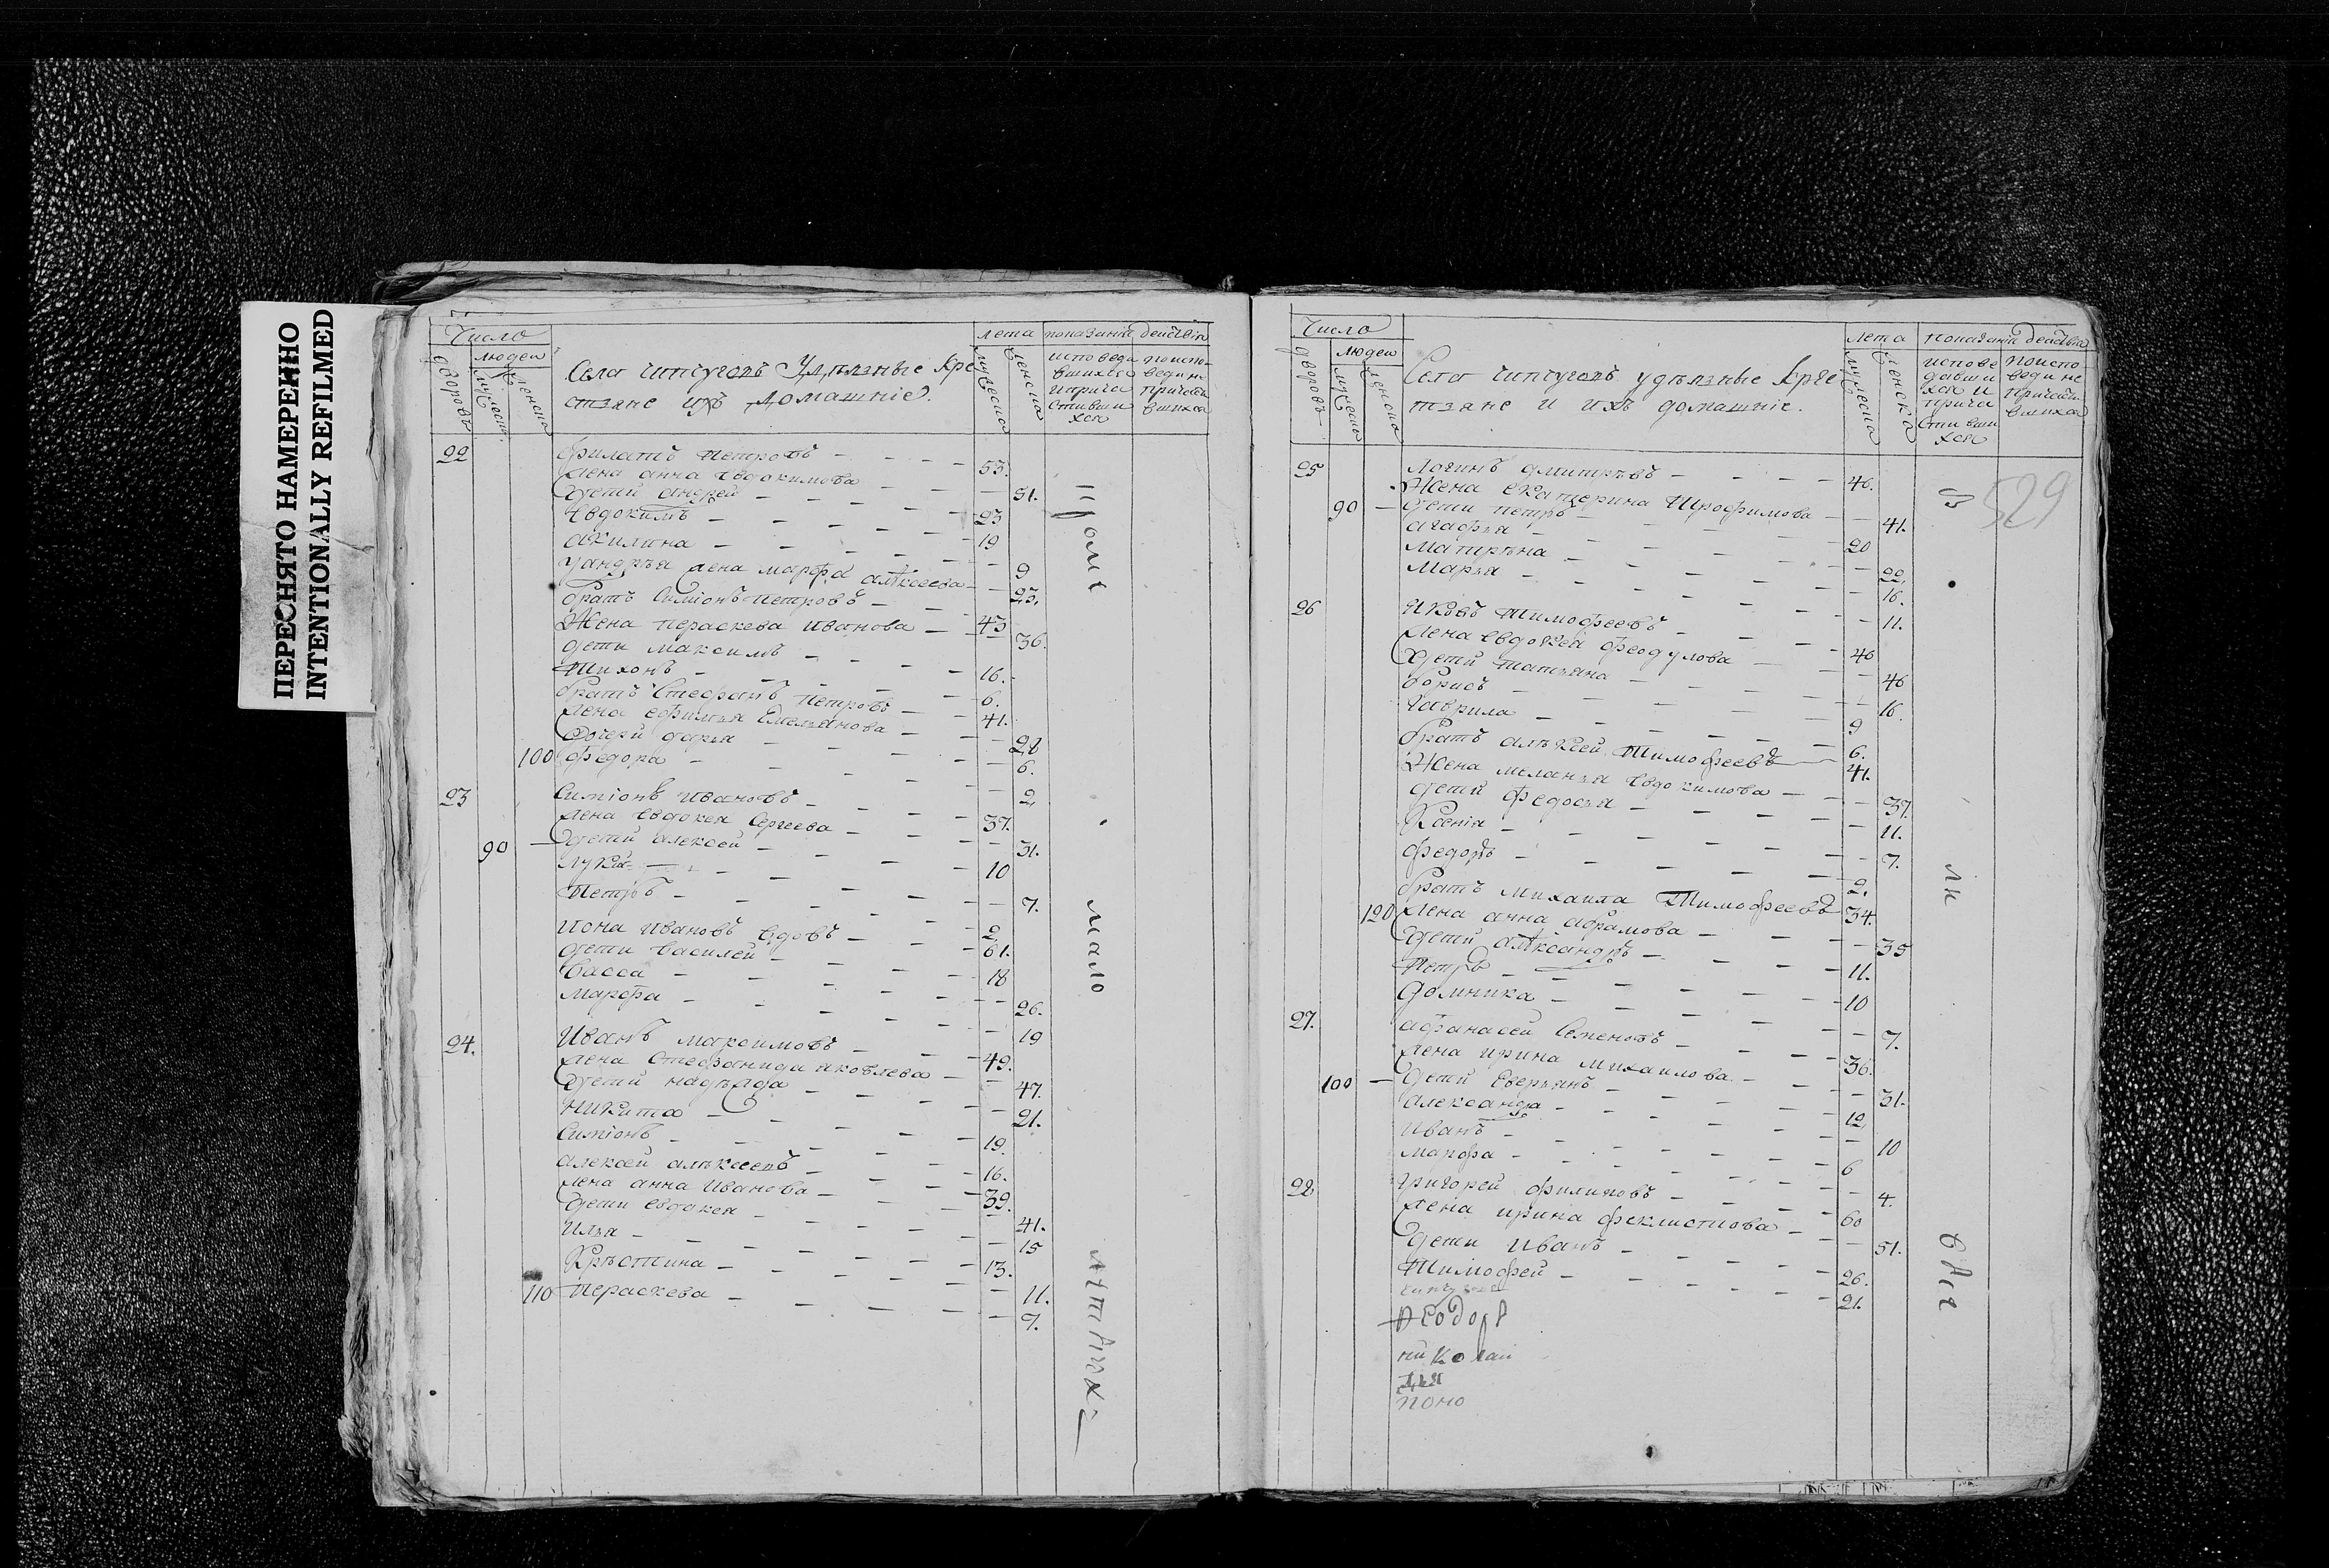 ПЕРЕСНЯТО НАМЕРЕННО
INTENTIONALLY REFILMED
Число
людей
дворовъ
мужеска
женска
Село Чипчугово Удѣлные Кре
стяне ихъ домашніе.
лета
мужеска
женска
показаніи действия
исповеда
вшихся
и прича
стивши
хся
по испо-
веди не
причасти
вшихся
22 Филатъ Петровъ - 53.
Жена Анна Евдокимова - 51.
Дети Андрей - 23
Евдокимъ - 19
Акилина - 9
У Андрея жена Марфа Алѣксеева - 23.
Братъ Симіонъ Петровъ - 43
Жена Пераскева Иванова - 36.
Дети Максимъ - 16.
Тихонъ - 6.
Братъ Стефанъ Петровъ - 41.
Жена Ефимья Емельянова - 28
Дочери Дарья - 6.
100 Федора - 2
23 Симіонъ Ивановъ - 37.
Жена Евдокея Сергеева - 31.
90 - Дети Алексей - 10
Лукия - 7.
Петръ - 2
Иона Ивановъ вдовъ - 61.
Дети Василей - 18
Васса - 26.
Марфа - 19
24. Иванъ Максимовъ - 49.
Жена Стефанида Яковлева - 47.
Дети Надѣжда - 21.
Никита - 19.
Симіонъ - 16.
Алексей Алѣксеевъ - 39.
Жена Анна Иванова - 41.
Дети Евдокея - 15
Илья - 13.
Крѣстина - 11.
110 Пераскева - 9.
мало
Число
людей
дворовъ
мужеска
женска
Село Чипчугово удѣлные Крее
стяне и ихъ домашніе.
лета
мужеска
женска
показаніи действия
испове
давши
хся и
прича
стивши
хся
по испо
веди не
причасти
вшихся
529
25 Логинъ Дмитрѣвъ - 46.
Жена Екатерина Трофимова - 41.
90 - Дети Петръ - 20
Агафья - 22.
Матрѣна - 16.
Марья - 11.
26 Яковъ Тимофеевъ - 46
Жена Евдокея Феодулова - 46
Дети Татьяна - 16.
Борисъ - 9
Гаврила - 6.
Братъ Алѣксей Тимофеевъ 41.
Жена Меланья Евдокимова - 37.
Дети Федосья - 11.
Ксенія - 7.
Федоръ - 2.
Братъ Михаила Тимофеевъ 34.
120 Жена Анна Абрамова - 35
Дети Алѣксандръ - 11.
Петръ - 10
Домника - 7.
27. Афанасей Семеновъ - 36.
Жена Ирина Михаилова - 31.
100 - Дети Аверьянъ - 12.
Александра - 10
Иванъ - 6
Марфа - 4.
28 Григорей Филиповъ - 60
Жена Ирина Феклистова - 51.
Дети Иванъ - 26.
Тимофей - 21.
Феодоръ
николай
поно